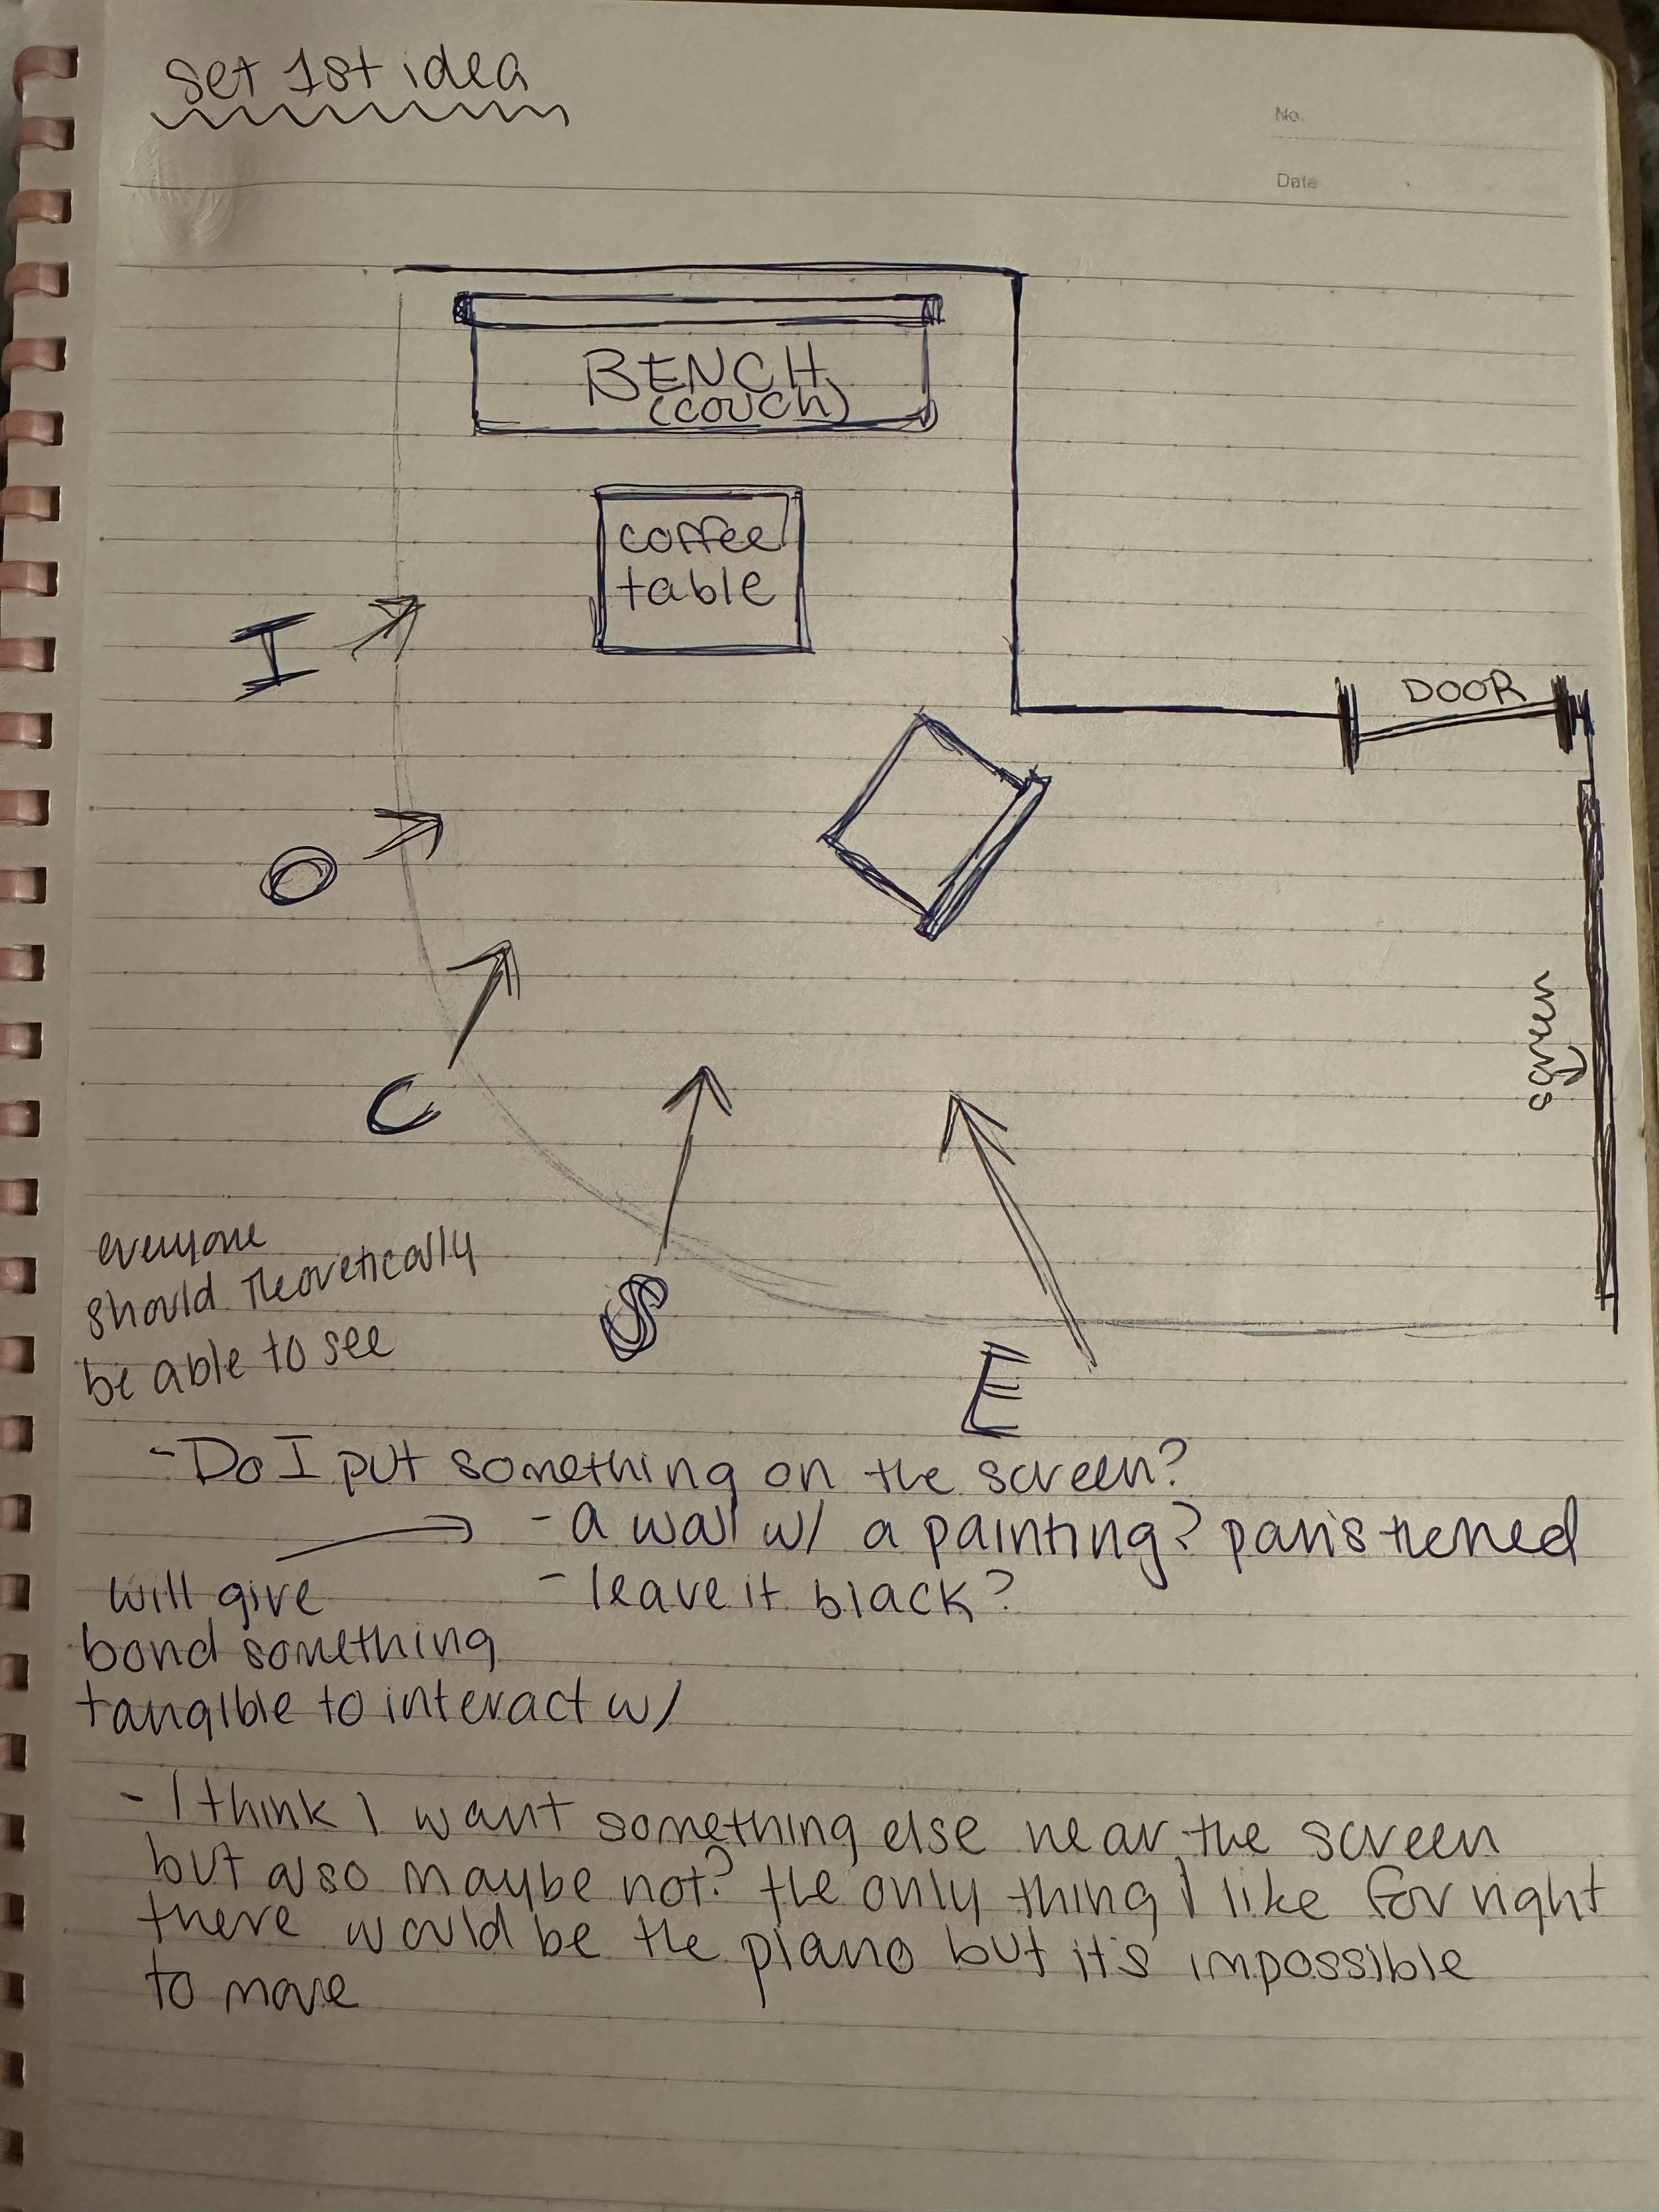 set 1st idea
No.
Date
BENCH
(couch)
coffee
table
I
DOOR
O
screen
C
S
E
everyone
should theoretically
be able to see
- Do I put something on the screen?
- a wall w/ a painting? paris themed
- leave it black?
will give
bond something
tangible to interact w/
- I think I want something else near the screen
but also maybe not? the only thing I like for right
there would be the piano but it's impossible
to move